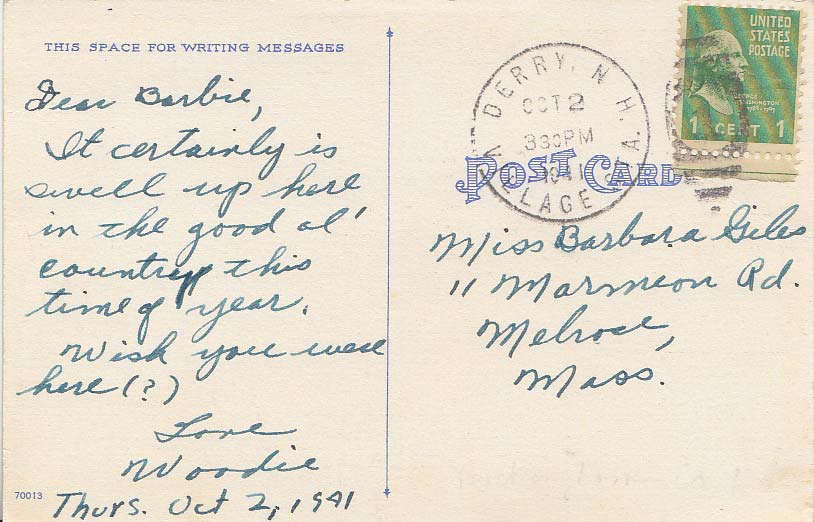 THIS SPACE FOR WRITING MESSAGES
Dear Barbie,
It certainly is
swell up here
in the good ol'
country this
time of year.
Wish you were
here (?)
Love
Woodie
Thurs. Oct 2, 1941
70013
DERRY, N. H.
OCT 2
330 PM
1941
VILLAGE STA.
UNITED
STATES
POSTAGE
GEORGE
WASHINGTON
1789-1797
1 CENT 1
POST CARD
Miss Barbara Giles
11 Marmion Rd.
Melrose,
Mass.